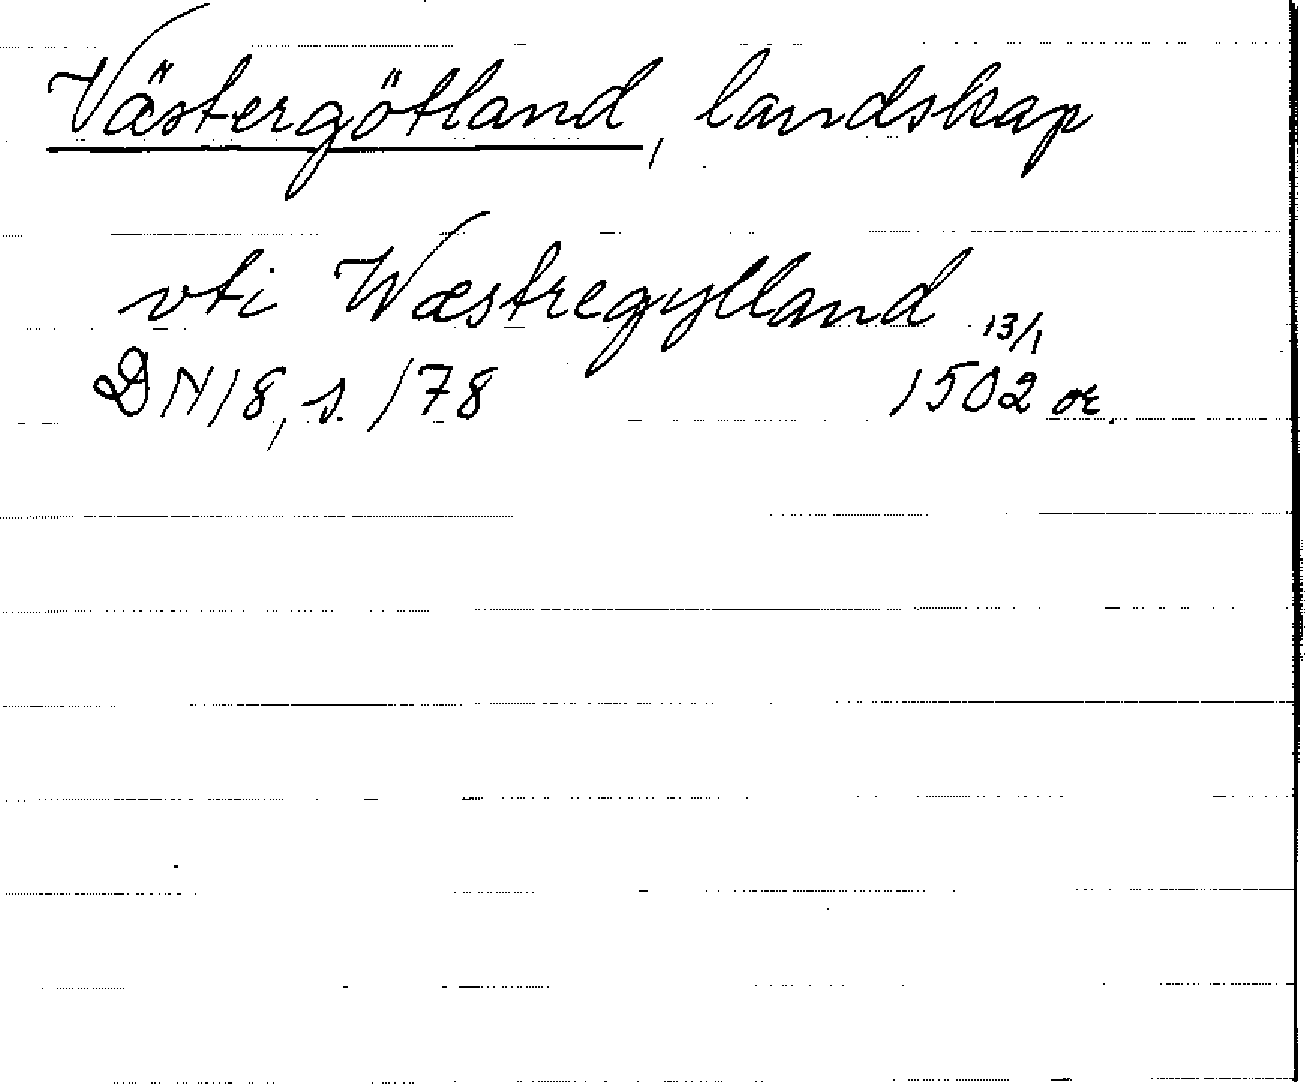 Västergötland, landskap
vti Wæstregylland
DN 18, s. 178 13/1 1502 or.